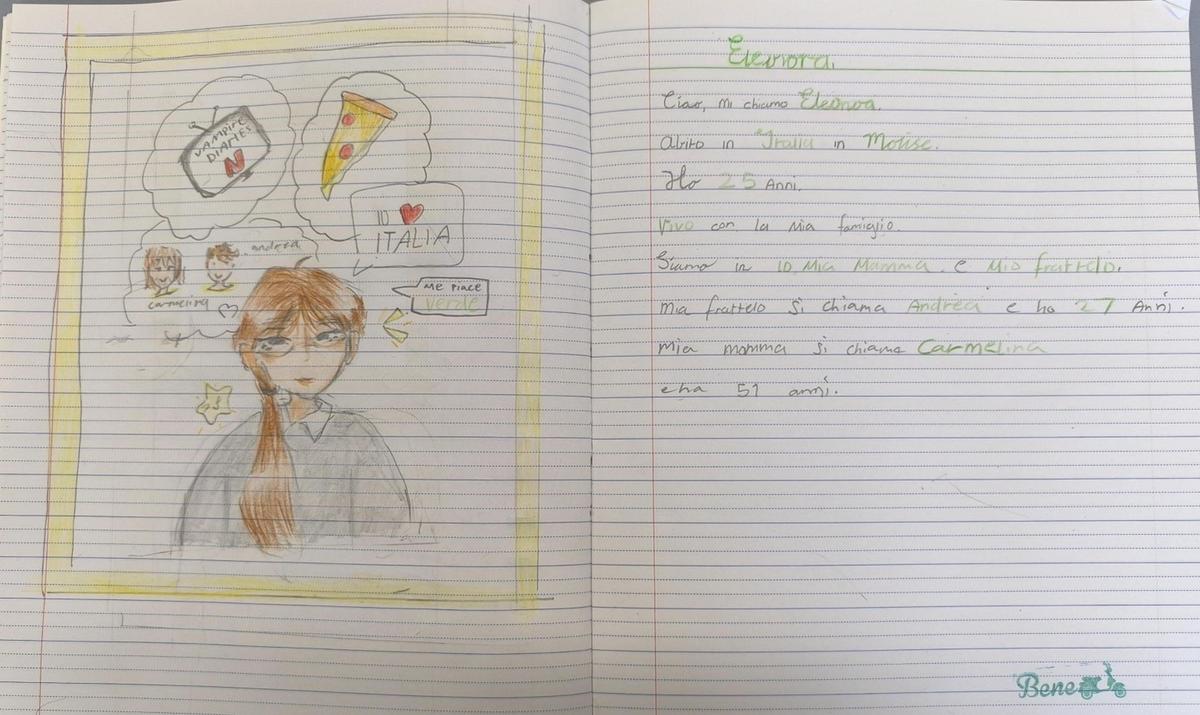 VAMPIRE
DIARIES
N
IO ❤
ITALIA
andrea
carmelina
ME PIACE
verde
Eleonora.
Ciao, mi chiamo Eleonora.
Abito in Italia in Molise.
Ho 25 Anni.
Vivo con la mia famiglio.
Siamo in IO, Mia Mamma e Mio frattelo.
mia frattelo si chiama Andrea e ha 27 Anni.
mia mamma si chiama Carmelina
e ha 51 anni.
Bene